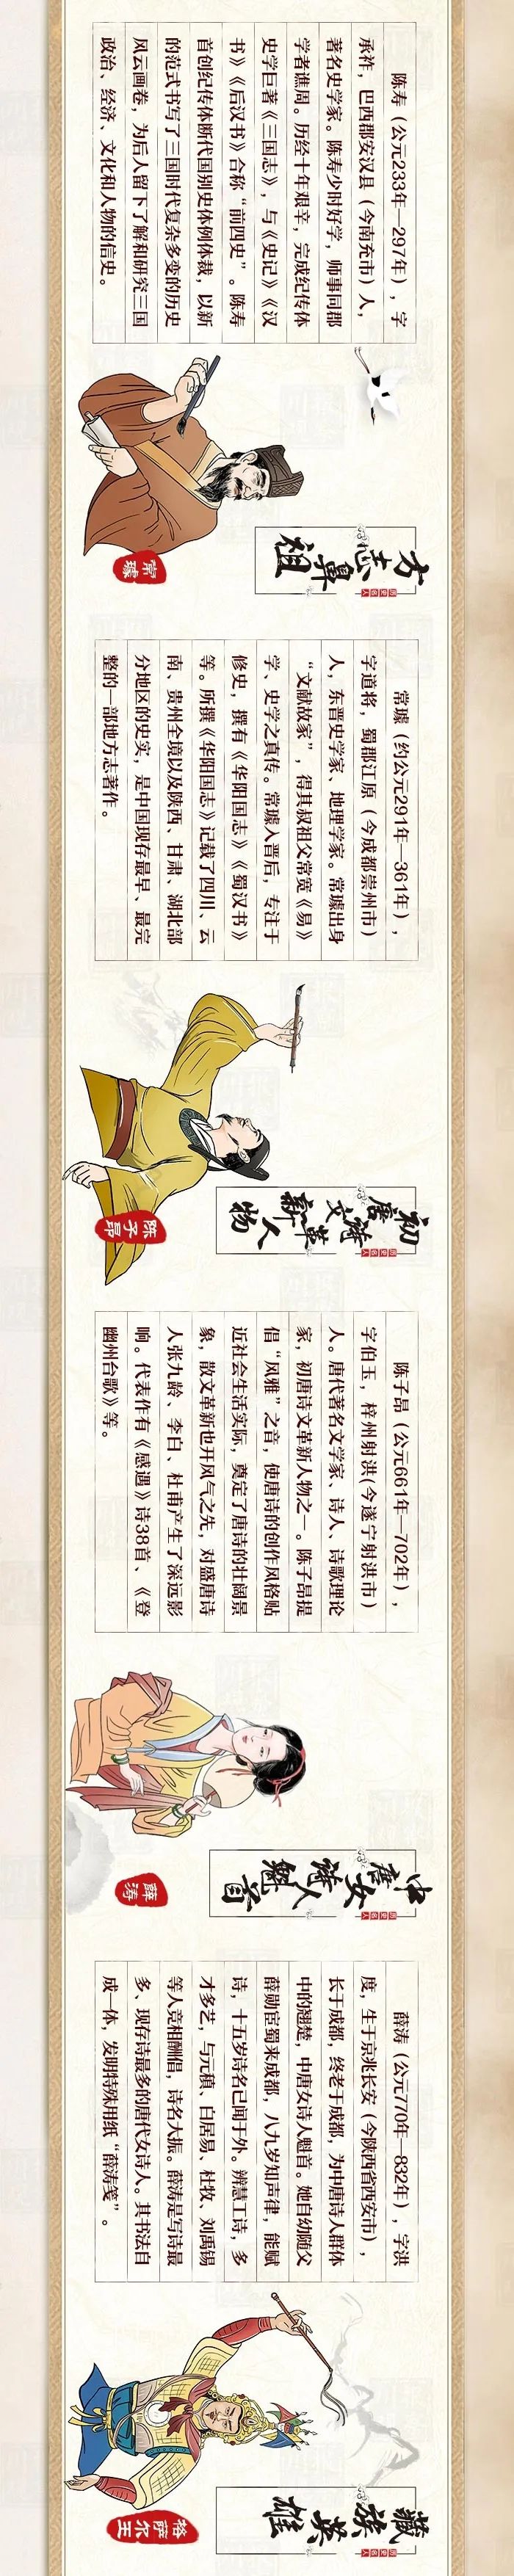 陈寿（公元233年—297年），字
承祚，巴西郡安汉县（今南充市）人，
著名史学家。陈寿少时好学，师事同郡
学者谯周。历经十年艰辛，完成纪传体
史学巨著《三国志》，与《史记》《汉
书》《后汉书》合称“前四史”。陈寿
首创纪传体断代国别史体例体裁，以新
的范式书写了三国时代复杂多变的历史
风云画卷，为后人留下了解和研究三国
政治、经济、文化和人物的信史。
方志鼻祖
历史名人
常璩
常璩（约公元291年—361年），
字道将，蜀郡江原（今成都崇州市）
人，东晋史学家、地理学家。常璩出身
“文献故家”，得其叔祖父常宽《易》
学、史学之真传。常璩入晋后，专注于
修史，撰有《华阳国志》《蜀汉书》
等。所撰《华阳国志》记载了四川、云
南、贵州全境以及陕西、甘肃、湖北部
分地区的史实，是中国现存最早、最完
整的一部地方志著作。
初唐诗文革新人物
历史名人
陈子昂
陈子昂（公元661年—702年），
字伯玉，梓州射洪(今遂宁射洪市)
人。唐代著名文学家、诗人、诗歌理论
家，初唐诗文革新人物之一。陈子昂提
倡“风雅”之音，使唐诗的创作风格贴
近社会生活实际，奠定了唐诗的壮阔景
象，散文革新也开风气之先，对盛唐诗
人张九龄、李白、杜甫产生了深远影
响。代表作有《感遇》诗38首、《登
幽州台歌》等。
中唐女诗人魁首
历史名人
薛涛
薛涛（公元770年—832年），字洪
度，生于京兆长安（今陕西省西安市），
长于成都，终老于成都，为中唐诗人群体
中的翘楚，中唐女诗人魁首。她自幼随父
薛勋宦蜀来成都，八九岁知声律，能赋
诗，十五岁诗名已闻于外。辨慧工诗，多
才多艺，与元稹、白居易、杜牧、刘禹锡
等人竞相酬倡，诗名大振。薛涛是写诗最
多、现存诗最多的唐代女诗人。其书法自
成一体，发明特殊用纸“薛涛笺”。
藏族英雄
历史名人
格萨尔王